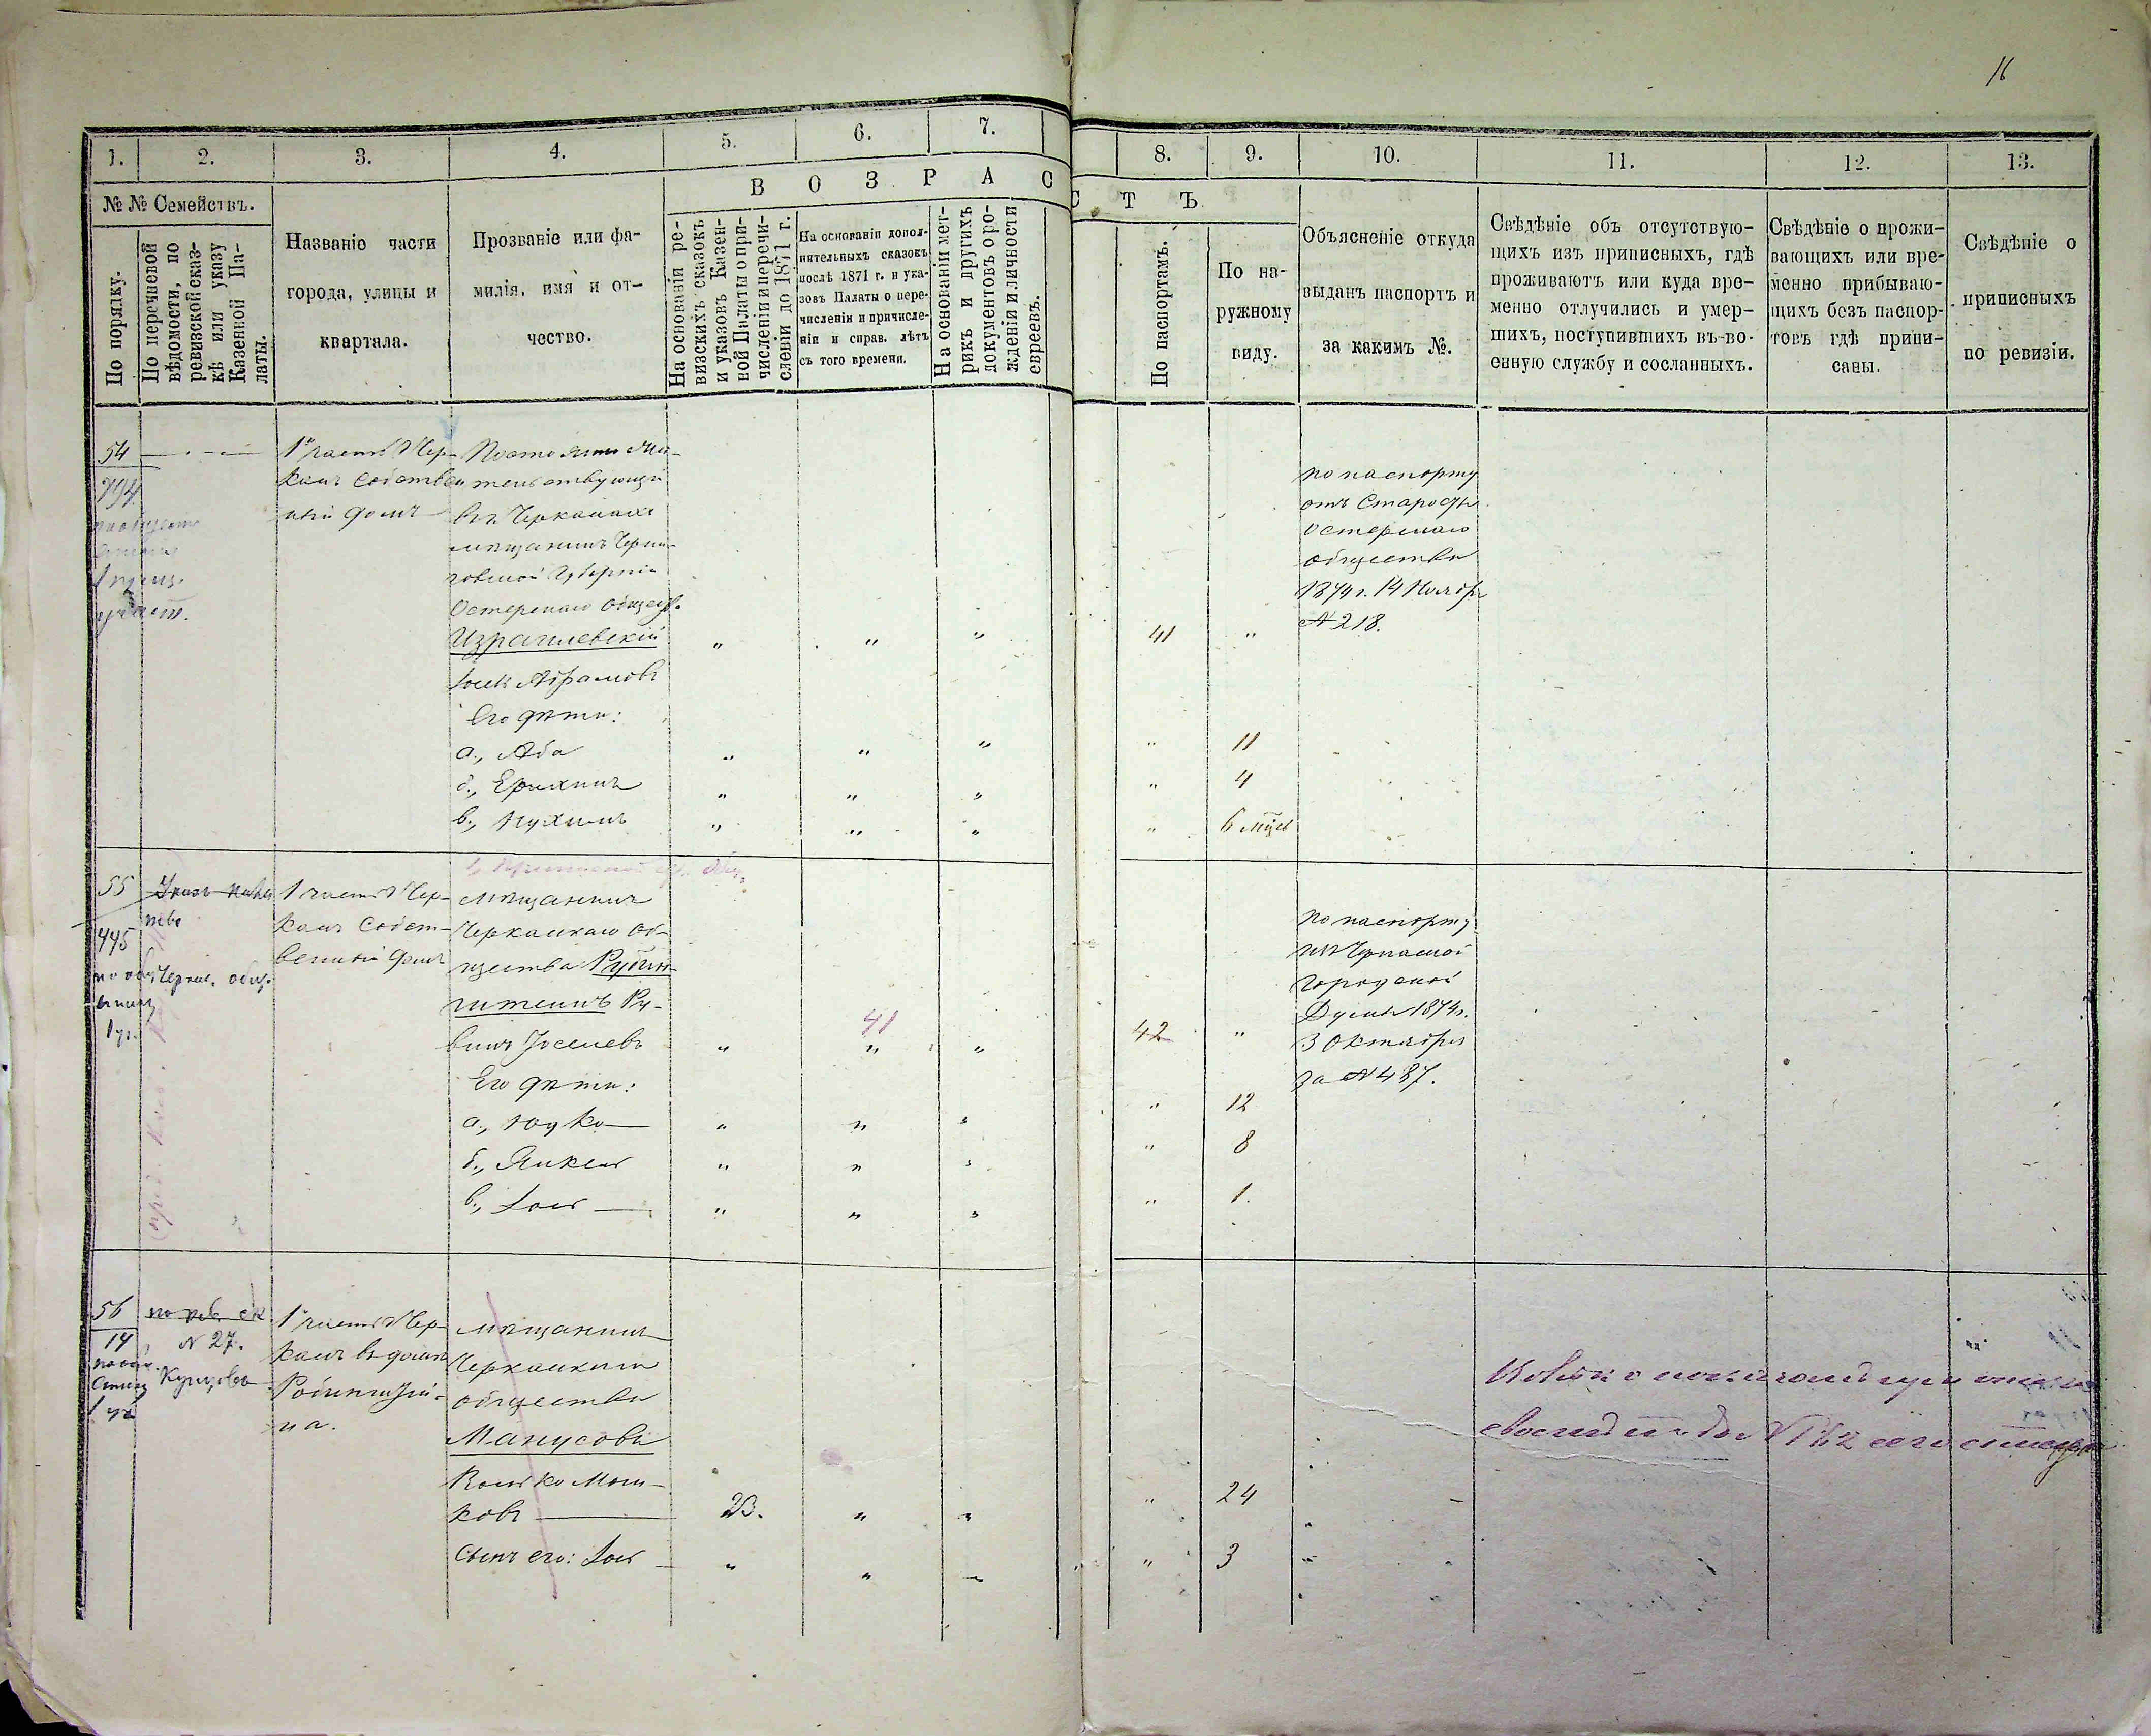 16
1.
2.
3.
4.
5.
6.
7.
8.
9.
10.
11.
12.
13.
№ № Семействъ.
По порядку.
По перечневой
вѣдомости, по
ревизской сказ-
кѣ или указу
Казенной Па-
латы.
Названіе части
города, улицы и
квартала.
Прозваніе или фа-
милія, имя и от-
чество.
ВОЗРАСТЪ.
На основаніи ре-
визскихъ сказокъ
и указовъ Казен-
ной Палаты о при-
численіи и перечи-
сленіи до 1871 г.
На основаніи допол-
нительныхъ сказокъ
послѣ 1871 г. и ука-
зовъ Палаты о пере-
численіи и причисле-
ніи и справ. лѣтъ
съ того времени.
На основаніи мет-
рикъ и другихъ
документовъ о ро-
жденіи и личности
евреевъ.
По паспортамъ.
По на-
ружному
виду.
Объясненіе откуда
выданъ паспортъ и
за какимъ №.
Свѣдѣніе объ отсутствую-
щихъ изъ приписныхъ, гдѣ
проживаютъ или куда вре-
менно отлучились и умер-
шихъ, поступившихъ въ во-
енную службу и сосланныхъ.
Свѣдѣніе о прожи-
вающихъ или вре-
менно прибываю-
щихъ безъ паспор-
товъ гдѣ припи-
саны.
Свѣдѣніе о
приписныхъ
по ревизіи.
54
1я часть г. Чер-
касъ собствен
ный домъ
въ Черкасахъ
мѣщанинъ Черни-
говской Губерніи
Остерскаго общес.
Израилевскій
Іосъ Абрамовъ
Его дѣти:
а., Аба
б., Ерихимъ
в., Нухимъ
41
11
4
6 мѣц
по паспорту
отъ Старосты
Остерскаго
общества
1874 г. 14 Ноябр
№ 218.
55
445
Указъ
Черкас. общ.
1 уч.
1 часть г. Чер-
касъ собст-
венный домъ
мѣщанинъ
Черкаскаго об-
щества Рубин-
штеинъ Ру-
винъ Іоселевъ
Его дѣти:
а., Юдко
б., Янкель
в., Іось
41
42
12
8
1.
по паспорту
изъ Черкаской
Городской
Думы 1874 г.
3 Октября
за № 487.
56
14
1 уч
по рев. ск
№ 27.
Купцовъ
1 часть г. Чер-
касъ въ домѣ
мѣщанинъ
Черкаскаго
общества
Манусовъ
Волько Мош-
ковъ
23.
24
Сынъ его: Іось
3